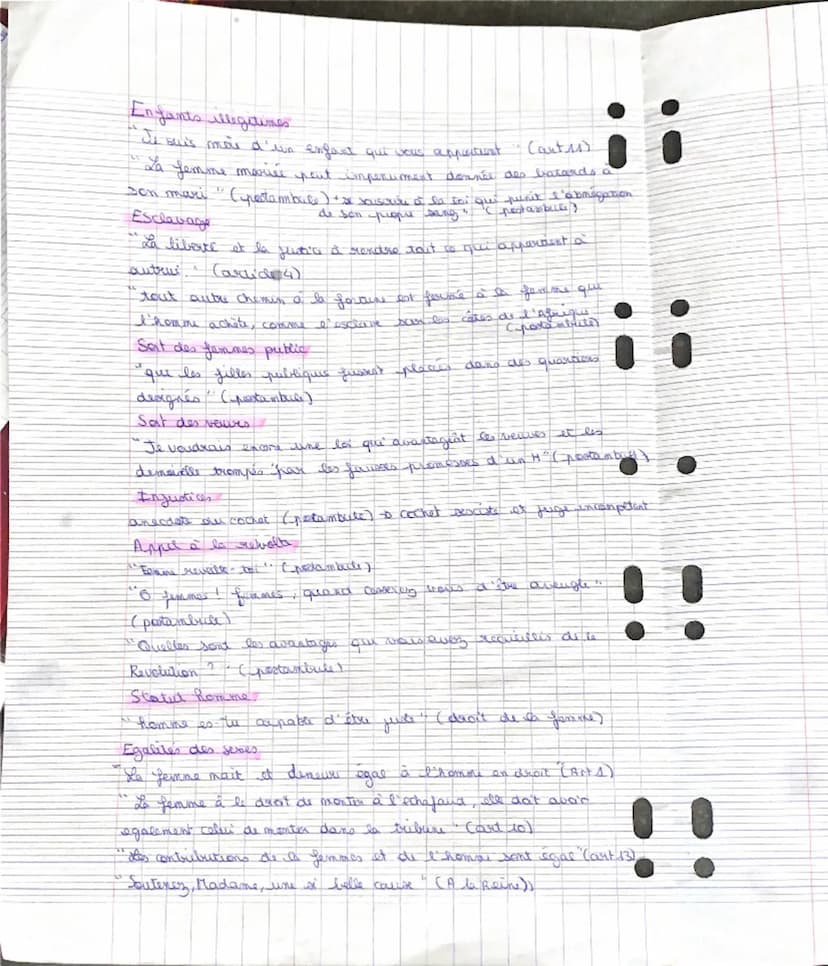 Enfants illegitimes
"Je suis mère d'un enfant qui vous appartient" (art 11)
"La femme mariée peut impunement donnée des batards à
son mari" (postambule) + "souscrire à la loi qui punit l'abnégation
de son propre sang" (postambule)
Esclavage
"La liberté et la justice à rendre tout ce qui appartient à
autrui." (article 4)
"tout autre chemin à la fortune est fermé à la femme que
l'homme achète, comme l'esclave sur les côtes de l'Afrique"
(postambule)
Sort des femmes public
"que les filles publiques fussent placés dans des quartiers
designés" (postambule)
Sort des veuves
"Je voudrais encore une loi qui avantagât les veuves et les
demoiselle trompés par les fausses promesses d'un H" (postambule)
Injustices
anecdote du cochet (postambule) → cochet sexiste et juge incompétent
Appel à la révolte
"Femme reveille-toi" (postambule)
"Ô femmes ! femmes, quand cesserez vous d'être aveugle"
(postambule)
"Quelles sont les avantages que vous avez recueillis de la
Revolution ?" (postambule)
Statut homme
"homme es-tu capable d'être juste" (droit de la femme)
Egalités des sexes
"La femme nait et demeure égal à l'homme en droit" (Art 1)
"La femme à le droit de monter à l'échafaud, elle doit avoir
egalement celui de monter dans la tribune" (art 10)
"Les contributions de la femmes et de l'homme sont égas" (art 13)
"Soutenez, Madame, une si belle cause" (A la Reine)